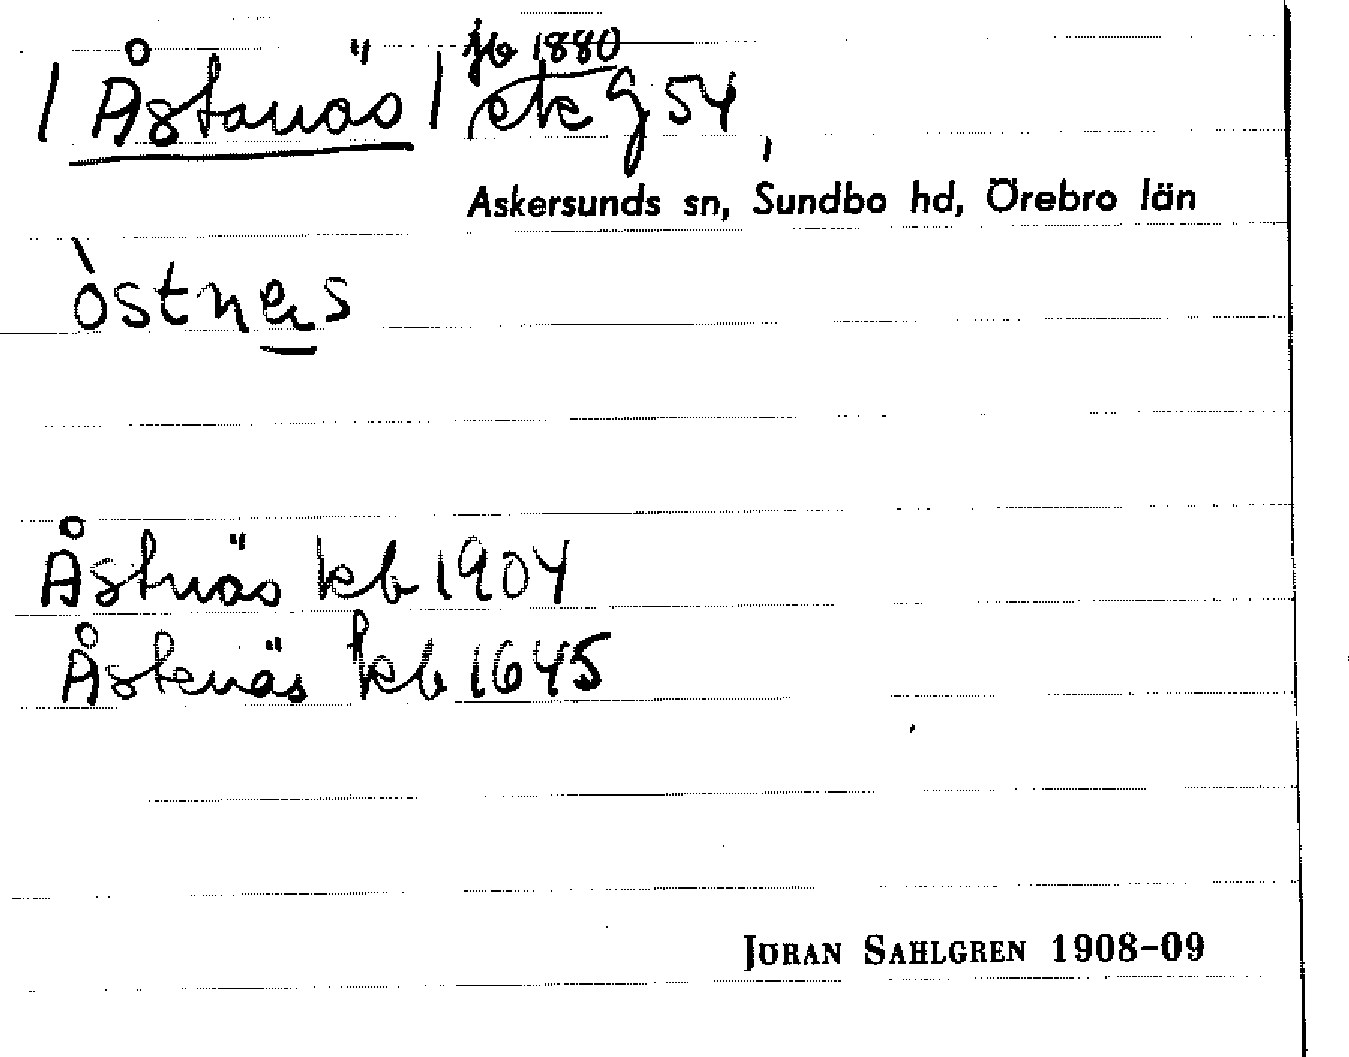 | Åstanäs | jb 1880
ek G 54
Askersunds sn, Sundbo hd, Örebro län
òstnäs
Åstnäs kb 1904
Åstenäs kb 1645
JÖRAN SAHLGREN 1908-09